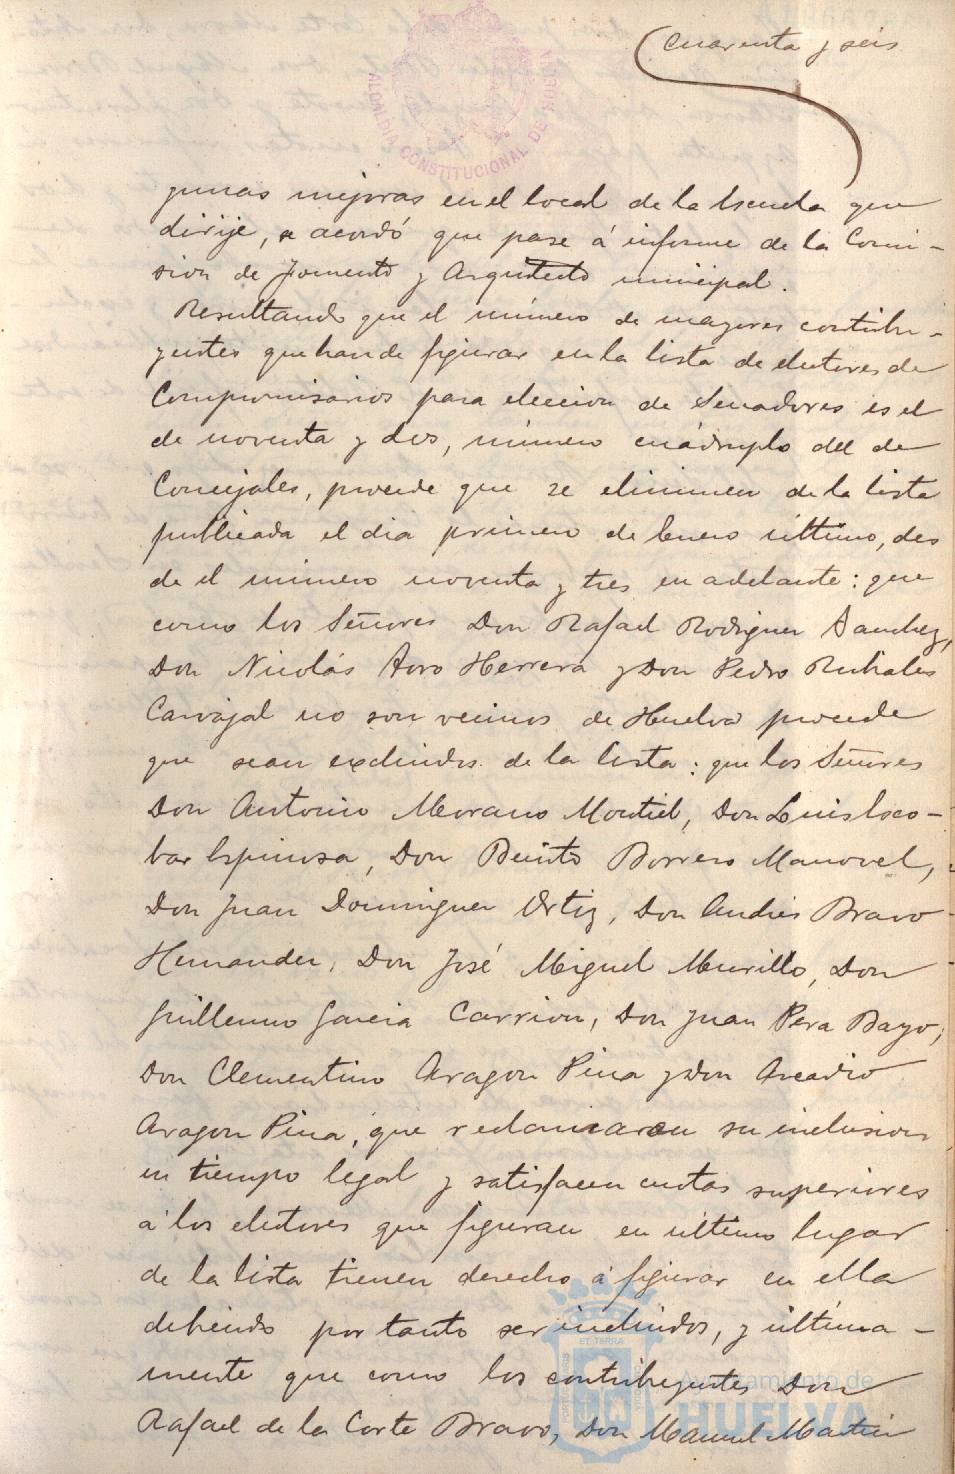 Cuarenta y seis
ALCALDIA CONSTITUCIONAL DE HUELVA
gunas mejoras en el local de la Escuela que
dirije, se acordó que pase á informe de la Comi-
sion de Fomento y Arquitecto municipal.
Resultando que el número de mayores contribu-
yentes que han de figurar en la lista de electores de
Compromisarios para eleccion de Senadores es el
de noventa y dos, número cuádruplo del de
Concejales, procede que se eliminen de la lista
publicada el dia primero de Enero último, des
de el número noventa y tres en adelante: que
como los Señores Don Rafael Rodriguez Sanchez,
Don Nicolás Toro Herrera y Don Pedro Rubiales
Carvajal no son vecinos de Huelva procede
que sean excluidos de la lista: que los Señores
Don Antonio Morano Montiel, Don Luis Esco-
bar Espinosa, Don Benito Borrero Manovel,
Don Juan Dominguez Ortiz, Don Andrés Bravo
Hernandez, Don José Miguel Murillo, Don
Guillermo Garcia Carrion, Don Juan Pera Bayo,
Don Clementino Aragon Pina y Don Arcadio
Aragon Pina, que reclamaron su inclusion
en tiempo legal y satisfacen cuotas superiores
á los electores que figuran en último lugar
de la lista tienen derecho á figurar en ella
debiendo por tanto ser incluidos, y última-
mente que como los contribuyentes Don
Rafael de la Corte Bravo, Don Manuel Martin
Ayuntamiento de
HUELVA